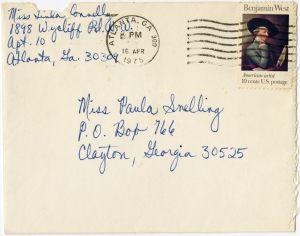 Miss Linda Connelly
1898 Wycliff Rd. N.W.
Apt. 10
Atlanta, Ga. 30309
ATLANTA, GA 300
PM
16 APR
1975
Benjamin West
American artist
10 cents U.S. postage
Miss Paula Snelling
P.O. Box 766
Clayton, Georgia 30525